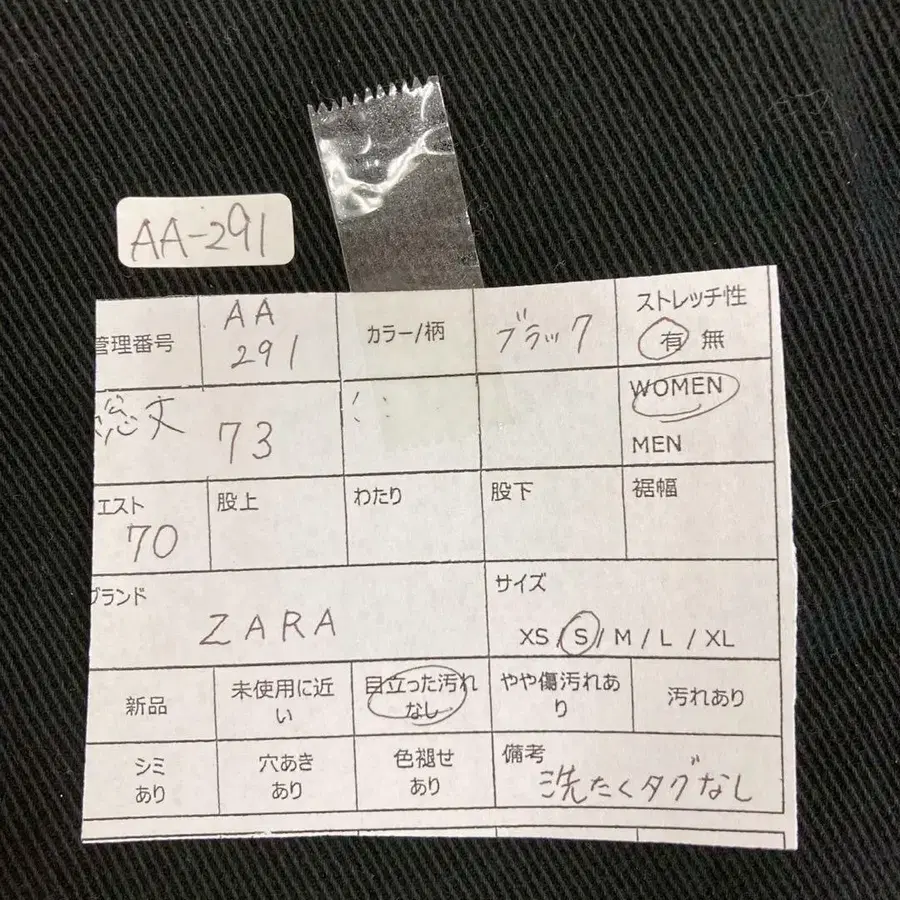 AA-291
管理番号
AA
291
カラー/柄
ブラック
ストレッチ性
有 無
総丈
73
WOMEN
MEN
エスト
70
股上
わたり
股下
裾幅
ブランド
ZARA
サイズ
XS / S / M / L / XL
新品
未使用に近
い
目立った汚れ
なし
やや傷汚れあ
り
汚れあり
シミ
あり
穴あき
あり
色褪せ
あり
備考
洗たくタグなし